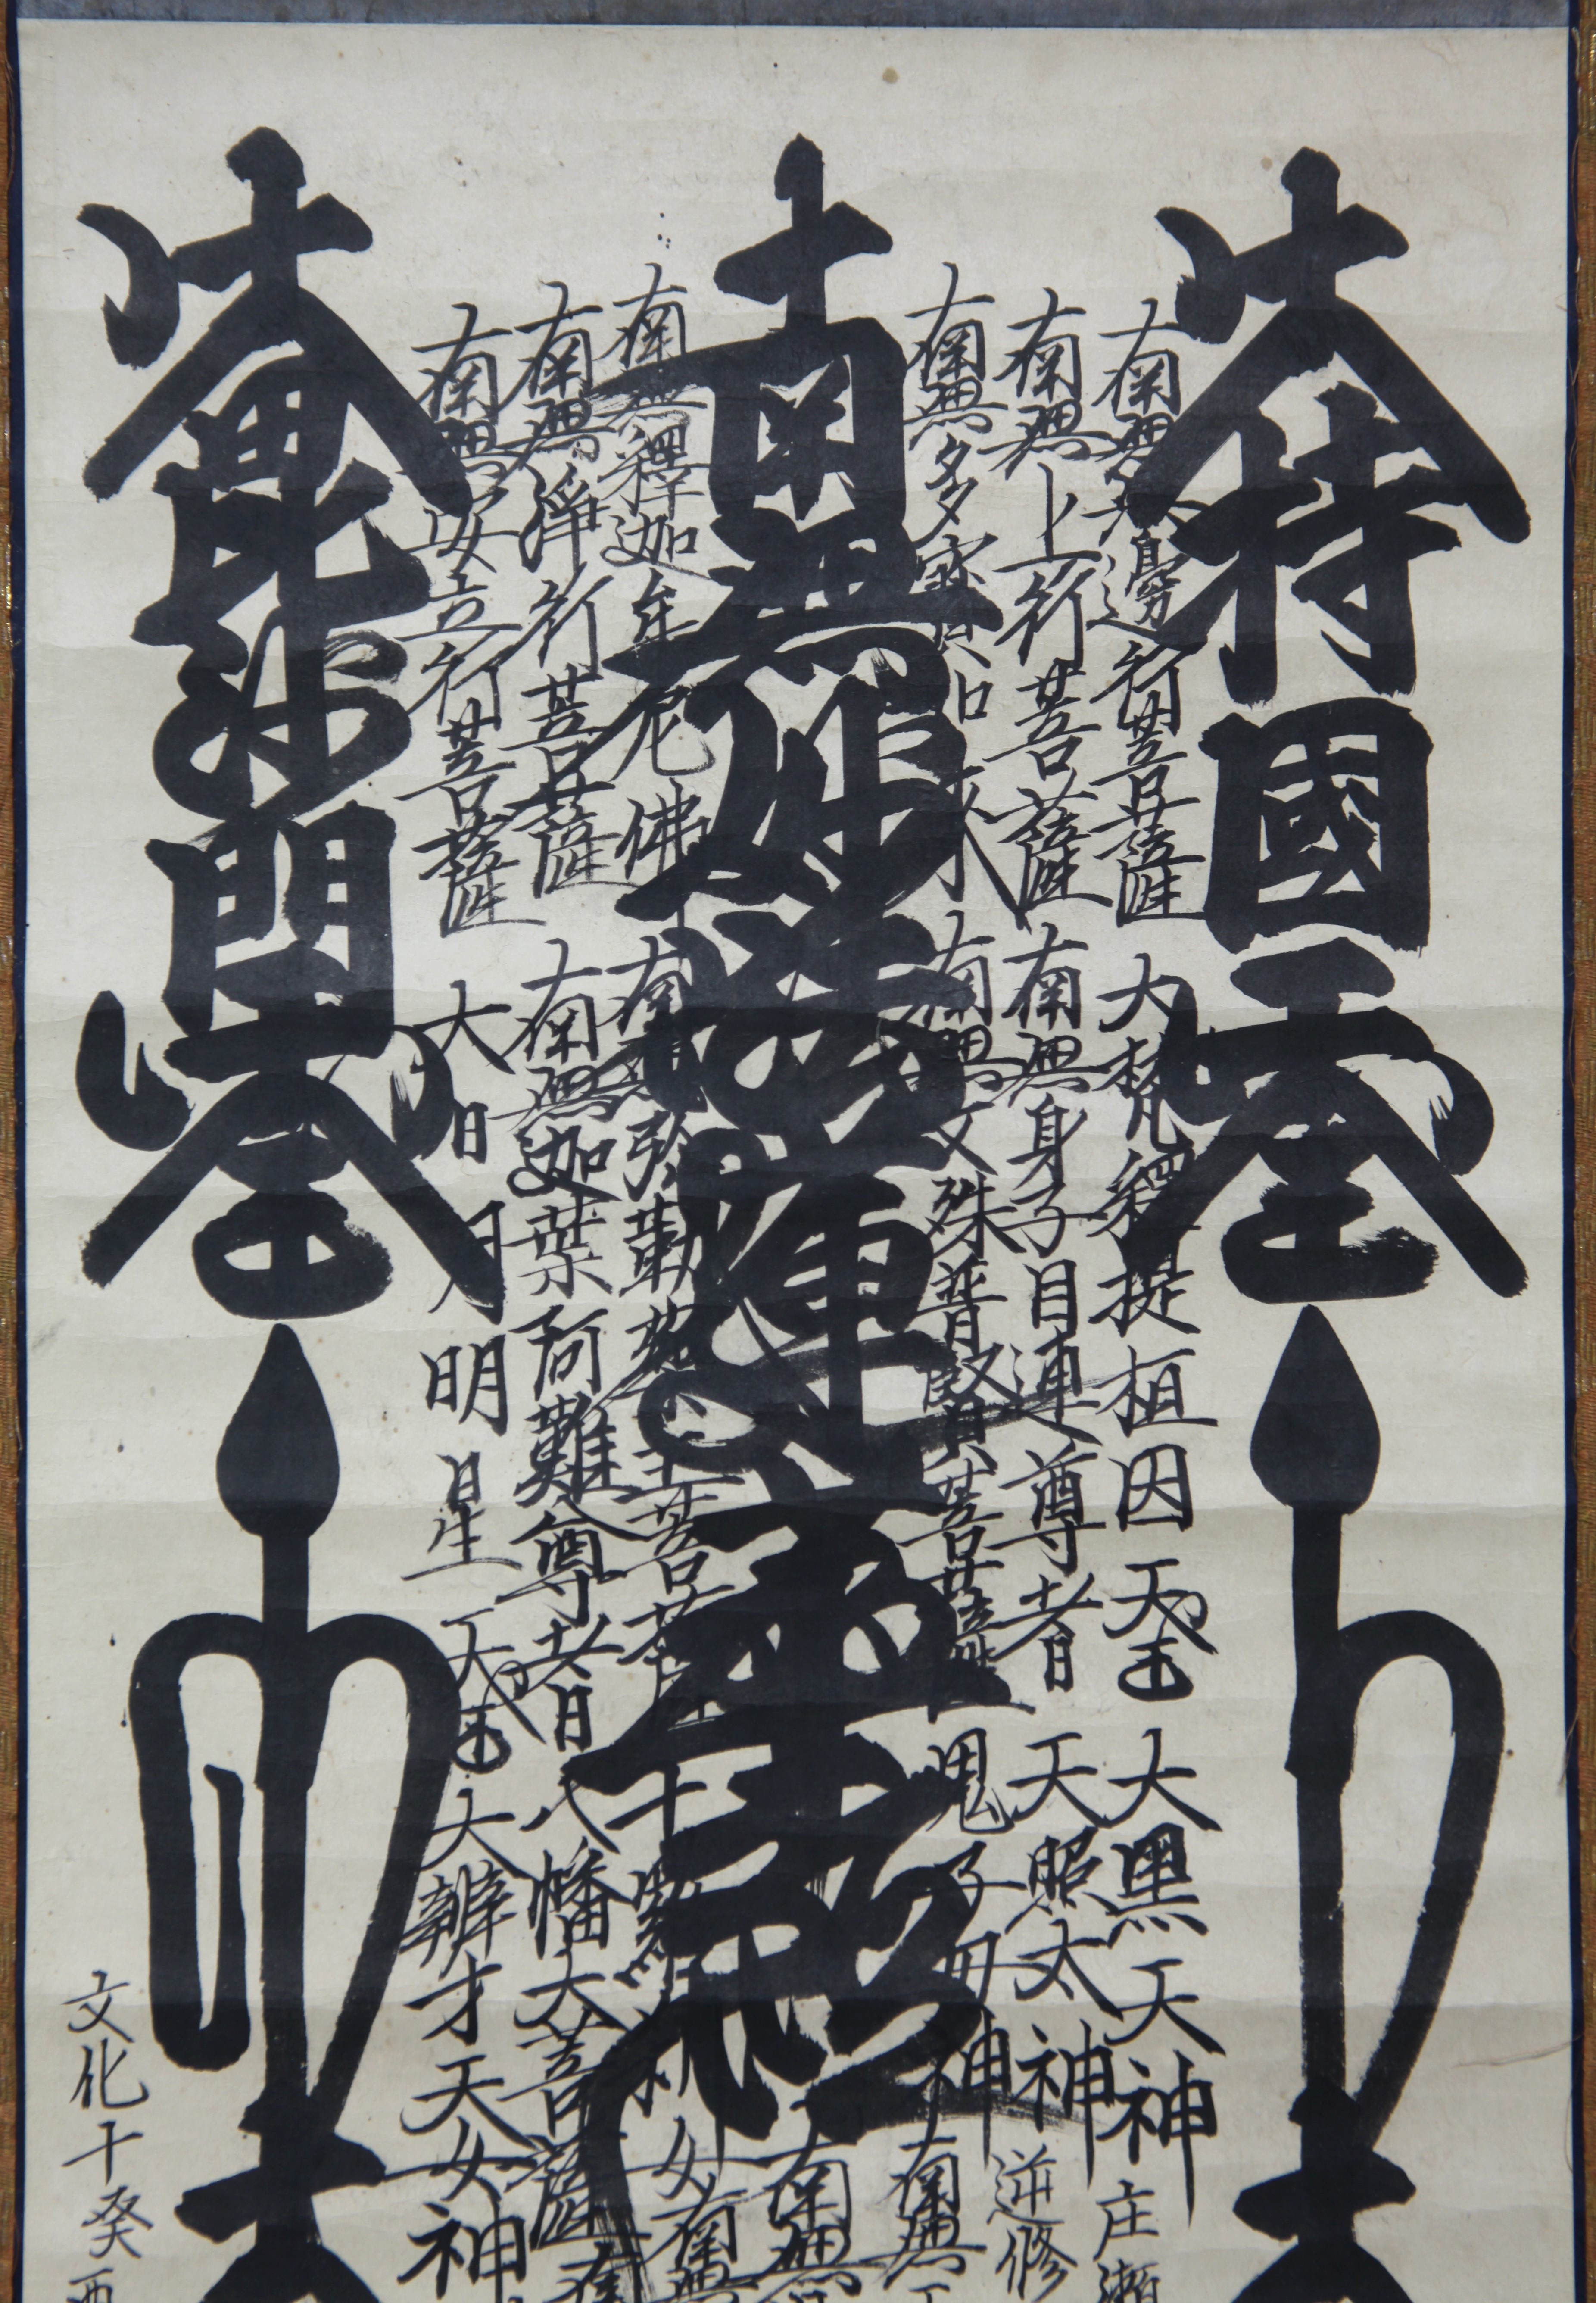 大持國天王
南無無邊行菩薩
大梵釋提桓因天王
大黒天神
庄瀬
南無上行菩薩
南無身子目連尊者
天照太神
逆修
南無多寶如来
南無文殊普賢菩薩
鬼子母神
南無
南無妙法蓮華経
南無
南無釋迦牟尼佛
南無弥勒薬王菩薩
十羅刹女
南無
南無淨行菩薩
南無迦葉阿難尊者
八幡大菩薩
南
南無安立行菩薩
大日月明星天王
大辨才天女神
大毘沙門天王
文化十癸酉